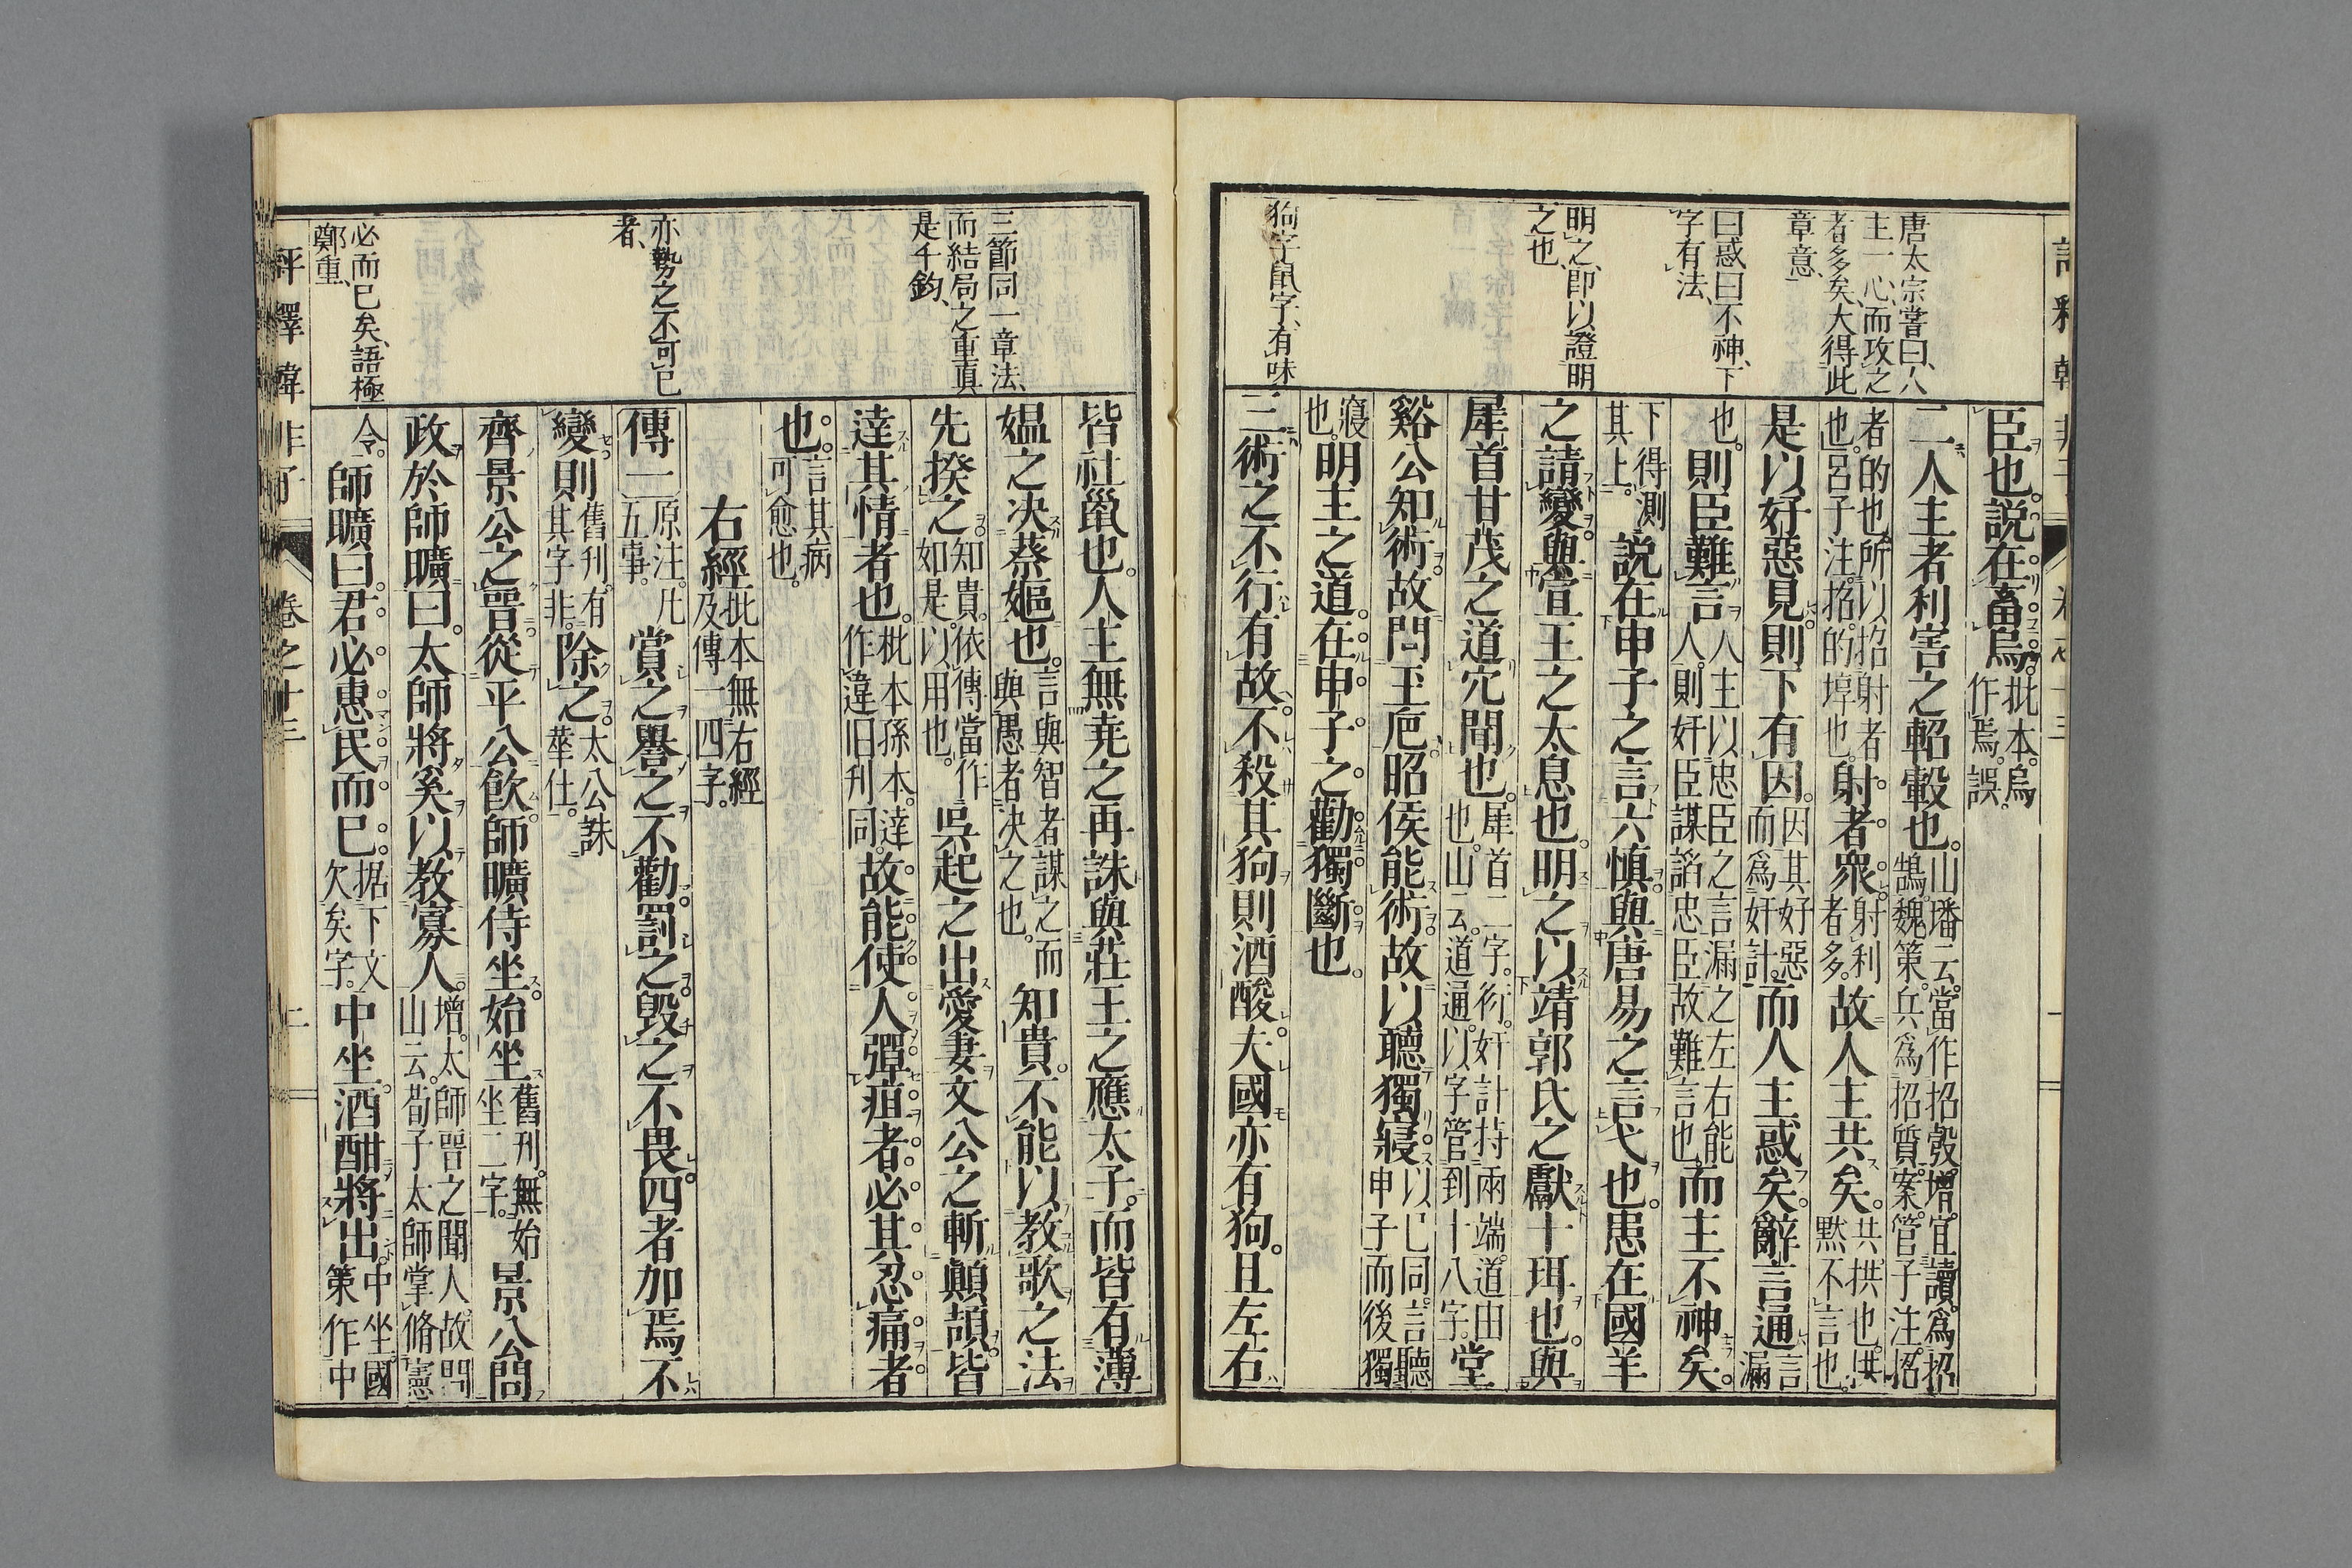 唐太宗嘗曰、人
主一心、而攻之
者多矣、大得此
章意、
曰惑、曰不神、下
字有法、
明之、即以證明
之也、
狗字鼠字、有味
臣也。說在畜烏。批本。烏作焉。誤。
二人主者利害之軺轂也。山璠云。當作招彀。增。宜讀爲招鵠。魏策。兵爲招質。案。管子注。招
者的也。所以招射者也。呂子注。招。的埻也。射者衆。射利者多。故人主共矣。共。拱也。拱默不言也。
是以好惡見則下有因。因其好惡而爲奸計。而人主惑矣。辭言通言漏
也。則臣難言人人主以忠臣之言漏之左右能人。則奸臣謀諂忠臣故難言也。而主不神矣。
下得測其上。說在申子之言六慎與唐易之言弋也。患在國羊
之請變與宣王之太息也。明之以靖郭氏之獻十珥也。與
犀首甘茂之道穴聞也。犀首二字。衍。奸計持兩端。道由也。山云。道通。以字管到十八字。堂
谿公知術。故問玉巵。昭侯能術。故以聽獨寢。以已同。言聽申子而後獨
寢也。明主之道。在申子之勸獨斷也。
三術之不行。有故。不殺其狗則酒酸。夫國亦有狗。且左右
三節同一章法、
而結局之重眞
是千鈞、
亦勢之不可已
者、
必而已矣、語極
鄭重、
皆社鼠也。人主無堯之再誅與莊王之應太子。而皆有薄
媼之決蔡嫗也。言與智者謀之而與愚者決之也。知貴。不能以教歌之法
先揆之。知貴。依傳當作如是。以用也。吳起之出愛妻文公之斬顛頡。皆
違其情者也。枇本孫本。達作違旧刊同。故能使人彈疽者必其忍痛者
也。言其病可愈也。
右經批本無右經及傳一四字。
傳一原注。凡五事。賞之譽之不勸。罰之毀之不畏。四者加焉不
變則舊刊。有其字非。除之。太公誅華仕。
齊景公之晉從平公飲。師曠侍坐。始坐舊刊。無始坐二字。景公問
政於師曠曰。太師將奚以教寡人。增。太師晋之聞人。故問山云。荀子太師掌脩憲
令。師曠曰。君必惠民而已。据下文欠矣字。中坐。酒酣。將出。中坐國策作中
評釋韓非子 卷之十三 二